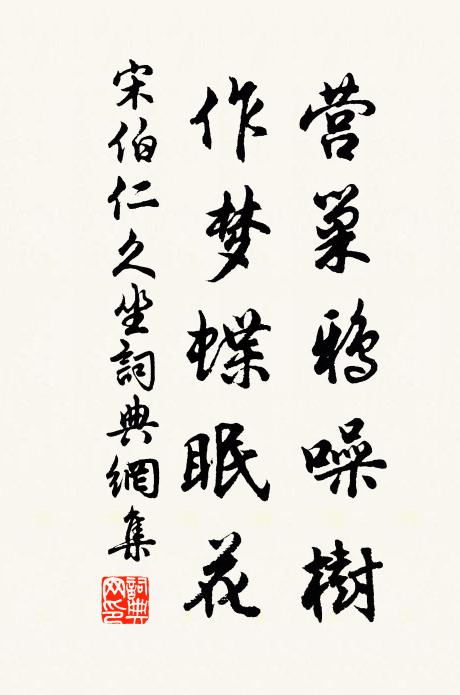 营巢鸦噪樹
作梦蝶眠花
宋伯仁久坐詞典網集
詞典网印